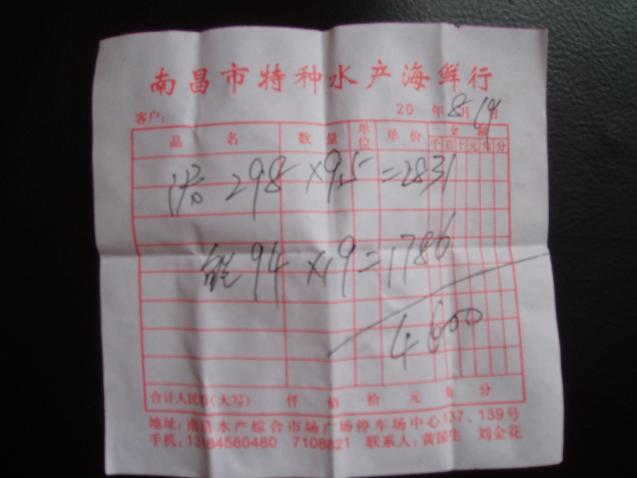 南昌市特种水产海鲜行
客户: 20 年8月19日
品名 数量 单位 单价 金额
千百十元角分
298×9.5=2831
94×19=1786
4600
合计人民币(大写) 仟 佰 拾 元 角 分
地址:南昌水产综合市场广场停车场中心137、139号
手机:13184580480 7108821 联系人:黄国生 刘金花